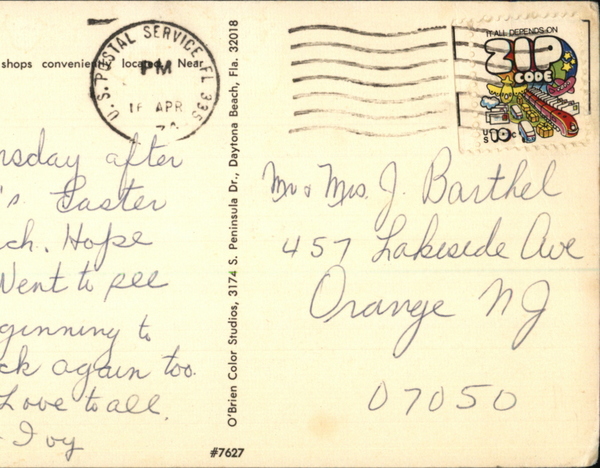 shops conveniently located. Near
U.S. POSTAL SERVICE FL 335
PM
16 APR
rsday after
's. Easter
ch. Hope
Went to see
ginning to
ck again too.
Love to all.
Ivy
O'Brien Color Studios, 3174 S. Peninsula Dr., Daytona Beach, Fla. 32018
#7627
IT ALL DEPENDS ON
ZIP
CODE
US
10c
Mr & Mrs. J. Barthel
457 Lakeside Ave
Orange NJ
07050